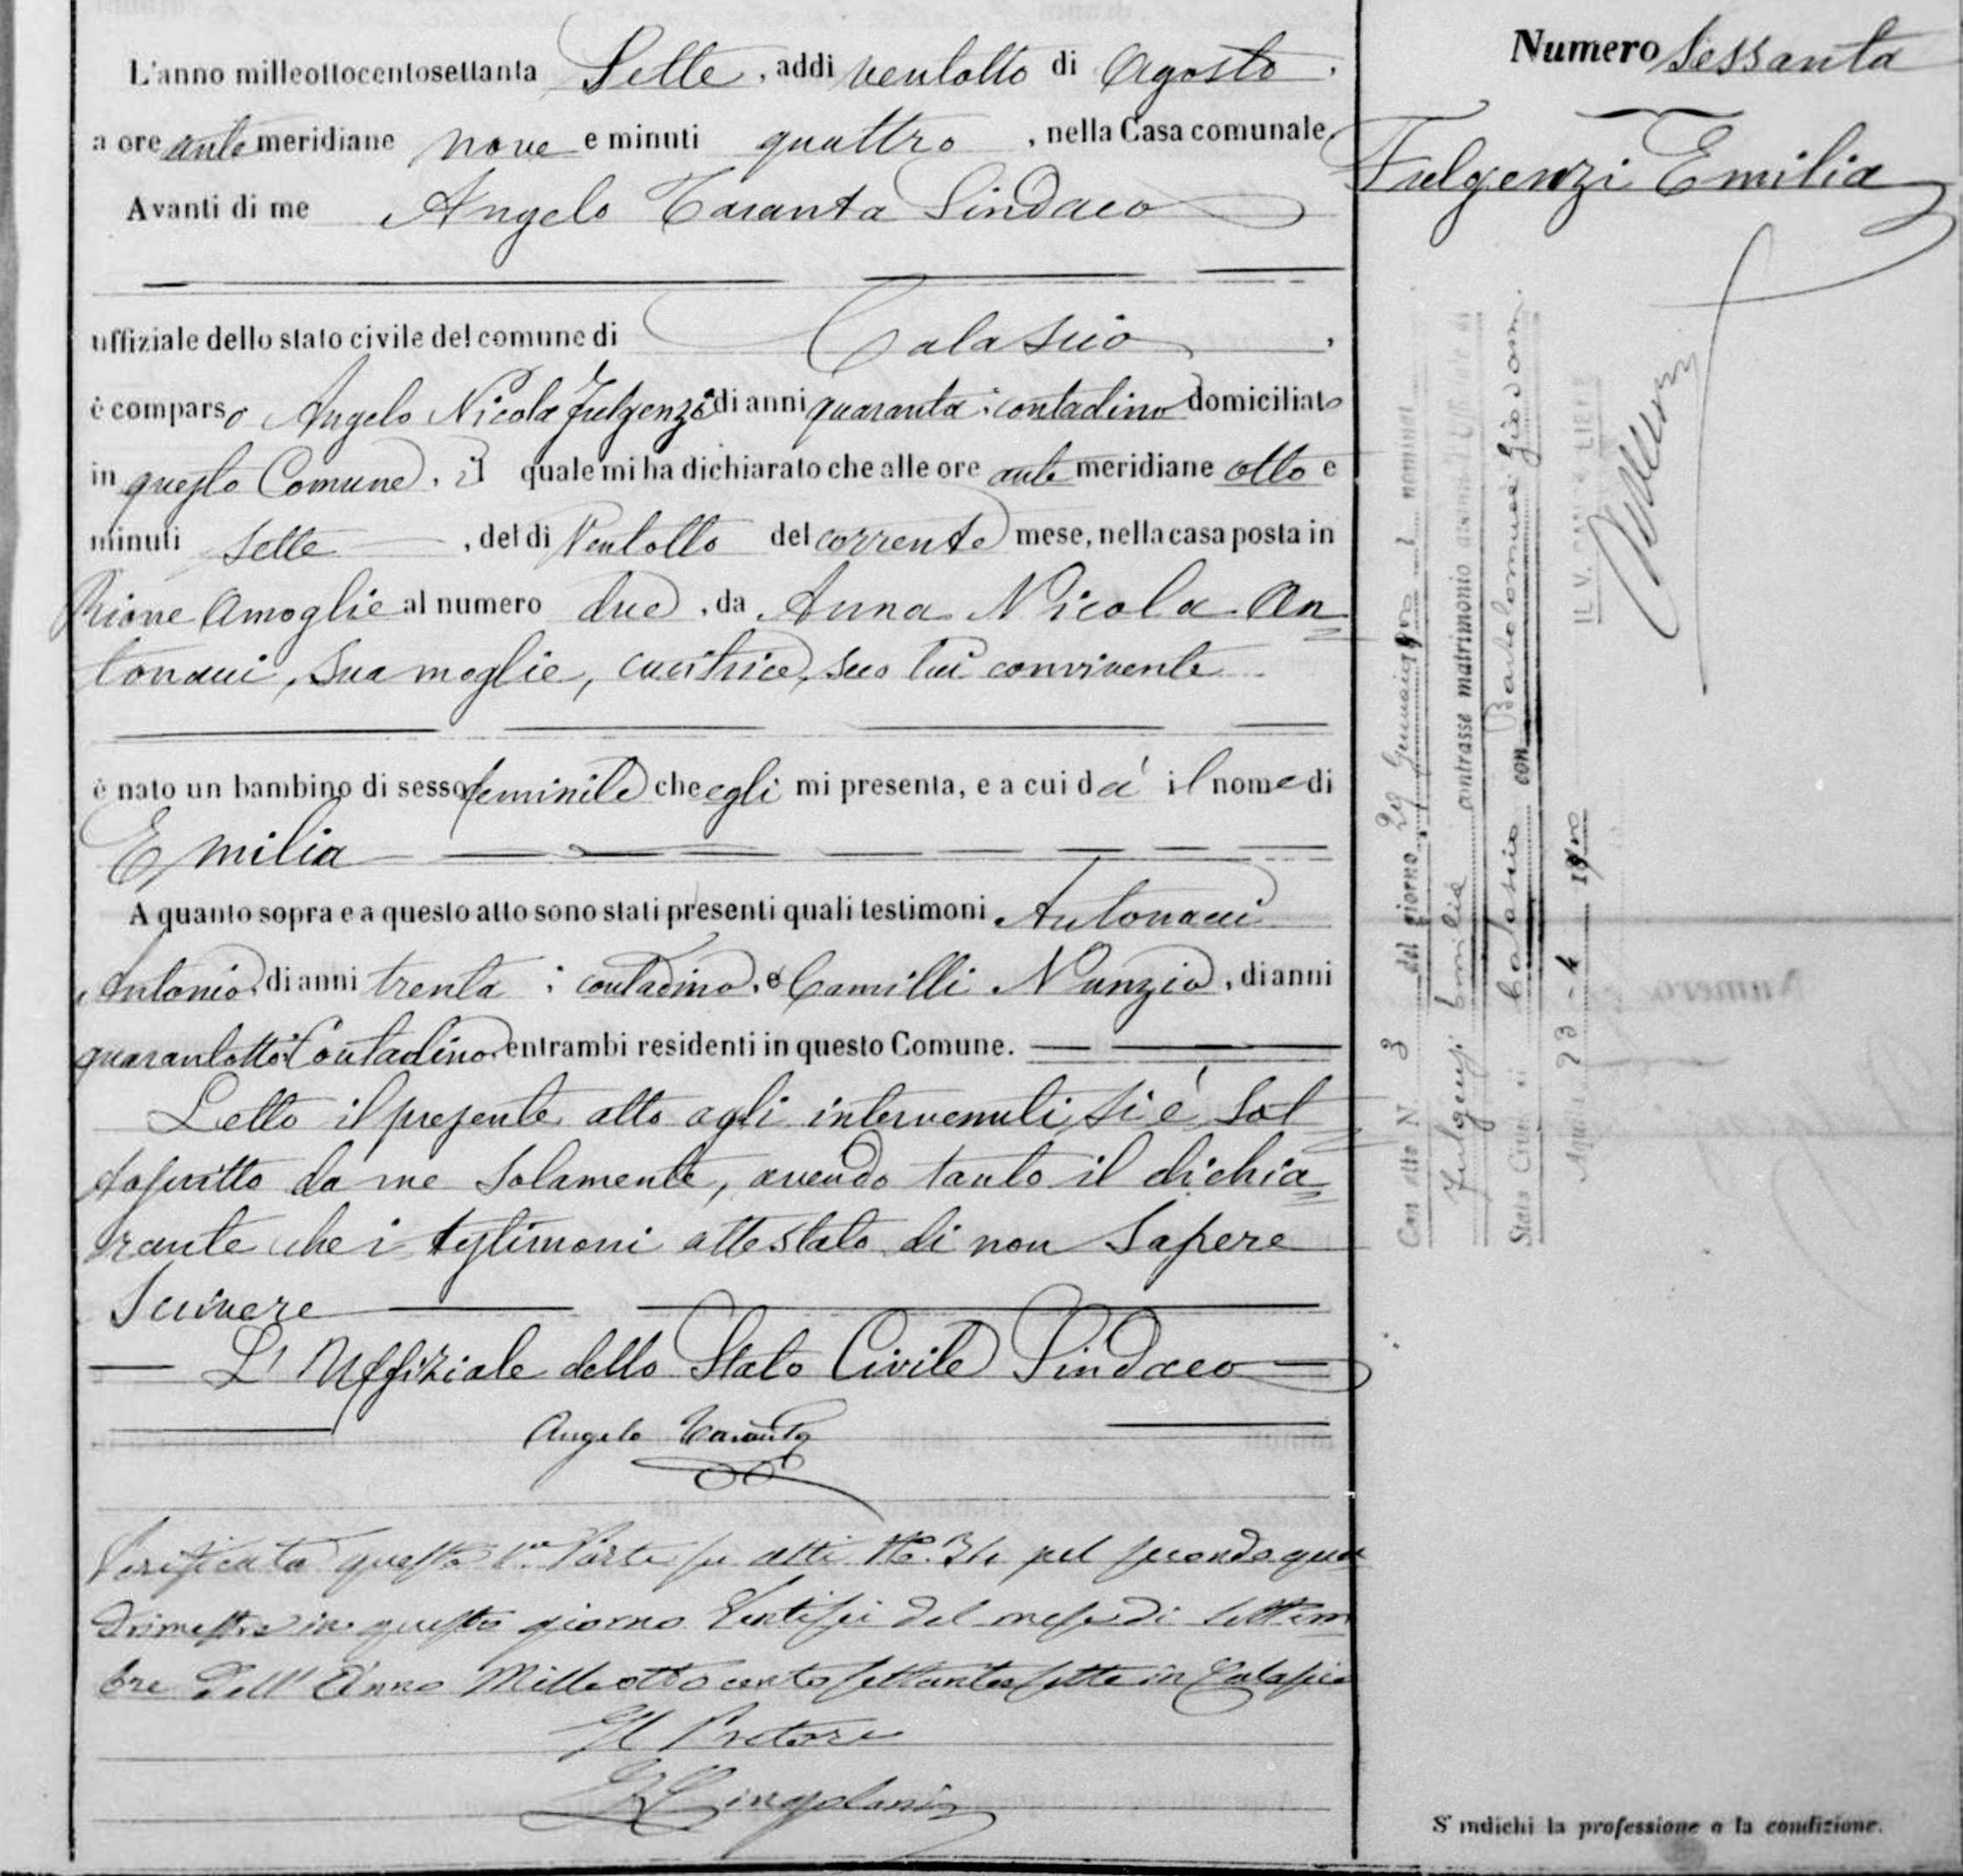 L'anno milleottocentosettanta Sette, addi ventotto di Agosto,
a ore antemeridiane nove e minuti quattro, nella Casa comunale.
Avanti di me Angelo Taranta Sindaco
uffiziale dello stato civile del comune di Calascio,
è comparso Angelo Nicola Fulgenzi di anni quaranta; contadino domiciliato
in questo Comune, il quale mi ha dichiarato che alle ore antemeridiane otto e
minuti sette, del dì Ventotto del corrente mese, nella casa posta in
Rione Amoglie al numero due, da Anna Nicola An
tonacci, sua moglie, cucitrice, seco lui convivente
è nato un bambino di sesso feminile che egli mi presenta, e a cui dà il nome di
Emilia
A quanto sopra e a questo atto sono stati presenti quali testimoni Antonacci
Antonio, di anni trenta; contadino, e Camilli Nunzio, di anni
quarantotto Contadino, entrambi residenti in questo Comune.
Letto il presente atto agli intervenuti, si è sot
toscritto da me solamente, avendo tanto il dichia
rante che i testimoni attestato di non Sapere
Scrivere
L'Uffiziale dello Stato Civile Sindaco
Angelo Taranta
Verificata questa 1a Parte su atti pel secondo qua
drimestre in questo giorno Ventisei del mese di Settem
bre dell'Anno Milleottocentosettantasette in Calascio
Il Pretore
Cingolani
Numero Sessanta
Fulgenzi Emilia
Con atto N. 3 del giorno 29 Gennaio
Fulgenzi Emilia contrasse matrimonio
Stato Civile di Calascio con Bartolomucci Giovanni
23-4
S'indichi la professione o la condizione.